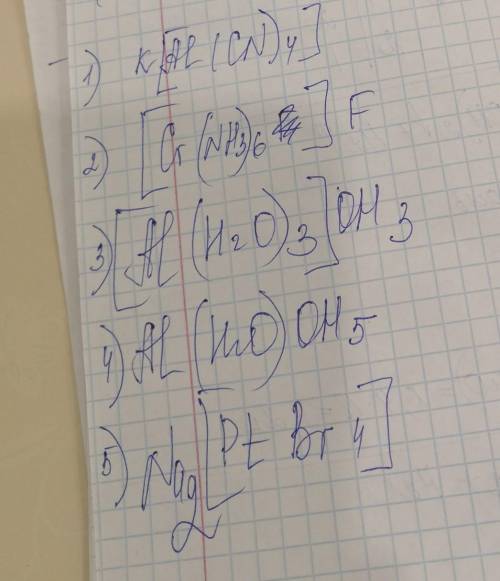 1) K[Al(CN)4]
2) [Cr(NH3)6]F
3) [Al(H2O)3]OH3
4) Al(H2O)OH5
5) Na2[PtBr4]